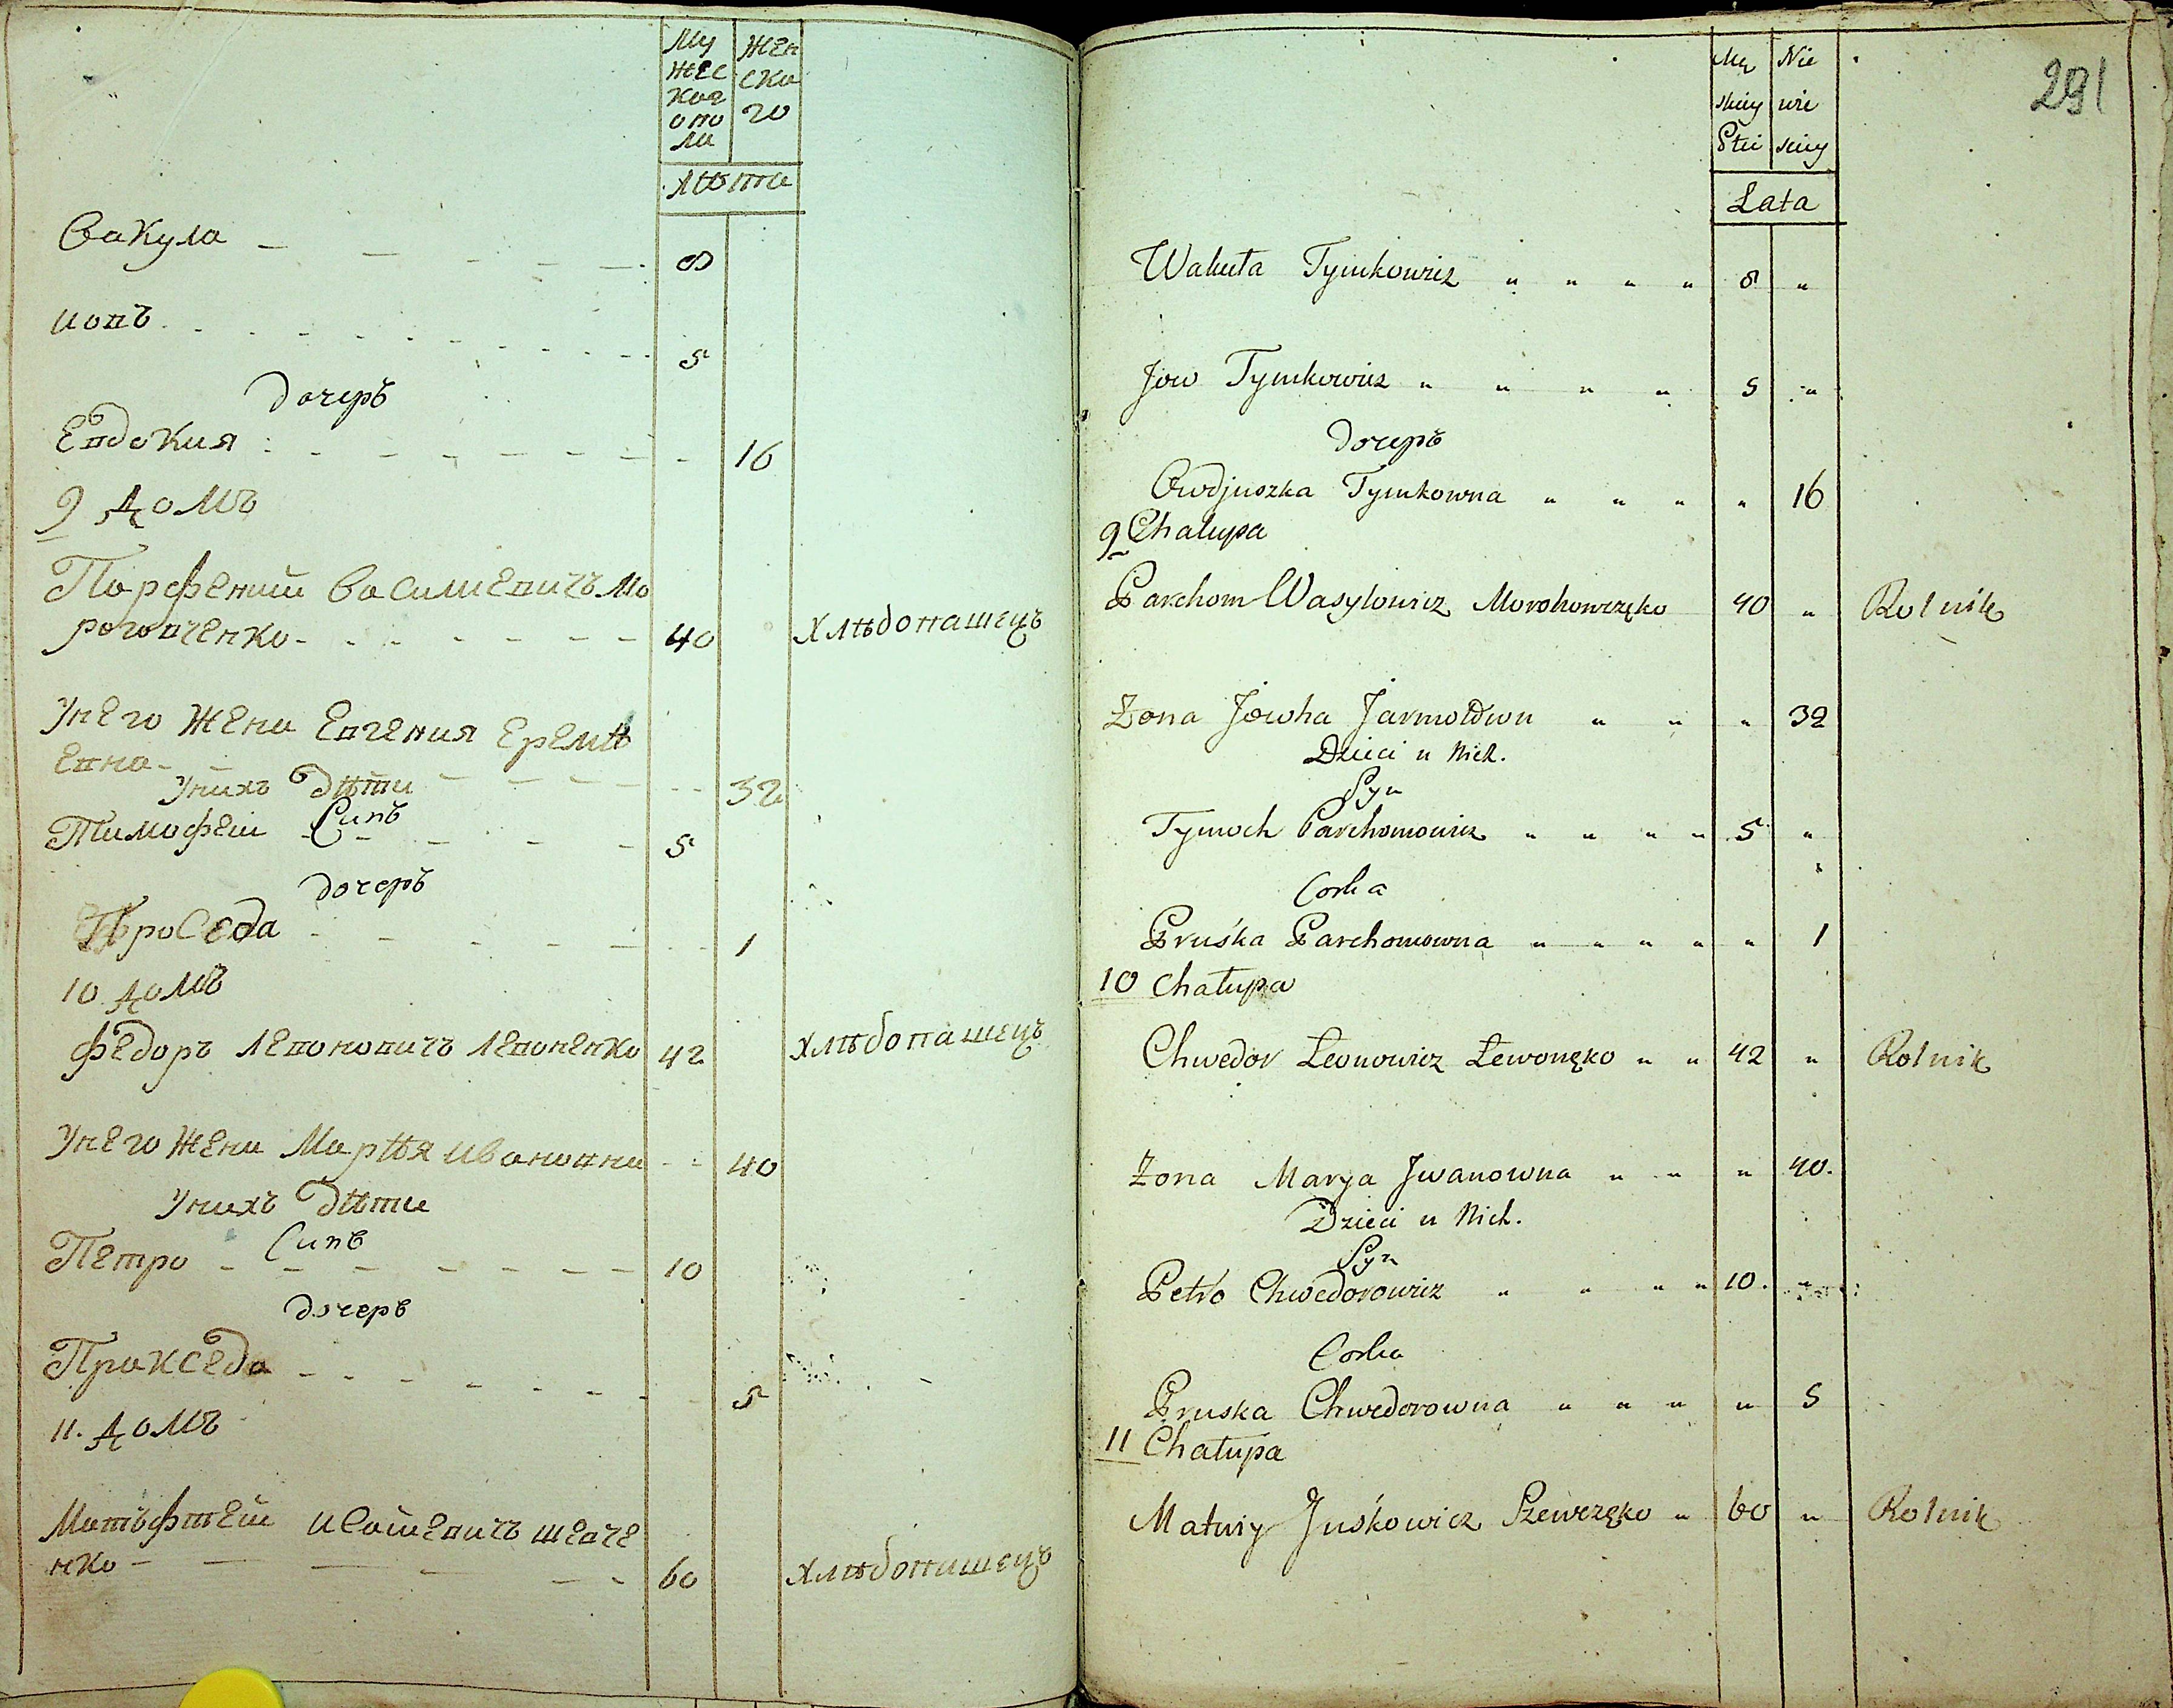 Му
жес
ког
о по
ла
жен
ска
го
лѣта
Вакула - - - - - 8
иовъ - - - - - 5
дочеръ
Евдокия - - - - - 16
9 домъ
Парфений Василиевичъ Мо
роговченко - - - - - 40 хлѣбопашецъ
У него жена Евгения Еремѣ
евна - - - - - 32
У нихъ дѣти
Синъ
Тимофей - - - - 5
дочеръ
Проседа - - - - - 1
10 домъ
Федоръ Левоновичъ Левоненко 42 хлѣбопашецъ
У него жена Маръя Ивановна - - 40
У нихъ дѣти
Синъ
Петро - - - - - - 10
дочеръ
Праксѣда - - - - - - 5
11. домъ
Матъфтей Исаиевичъ шевче
нко - - - - - 60 хлѣбопашецъ
291
Mę
skiy
Płci
Nie
wie
sciey
Lata
Wakuła Tymkowicz " " " " 8 "
Jow Tymkowicz " " " " 5 "
дочеръ
Owdjuszka Tymkowna " " " " 16
9 Chalupa
Parchom Wasylowicz Morohowczęko 40 " Rolnik
Żona Jowha Jarmołown " " " 32
Dzieci u Nich.
Syn
Tymoch Parchomowicz " " " " 5 "
Corka
Pruśka Parchomowna " " " " " 1
10 Chałupa
Chwedor Łeonowicz Łewonęko " " 42 " Rolnik
Żona Marya Jwanowna " " " 40.
Dzieci u Nich.
Syn
Petró Chwedorowicz " " " " 10. "
Corka
Pruska Chwedorowna " " " " 5
11 Chałupa
Matwiy Juśkowicz Szewczęko " 60 " Rolnik